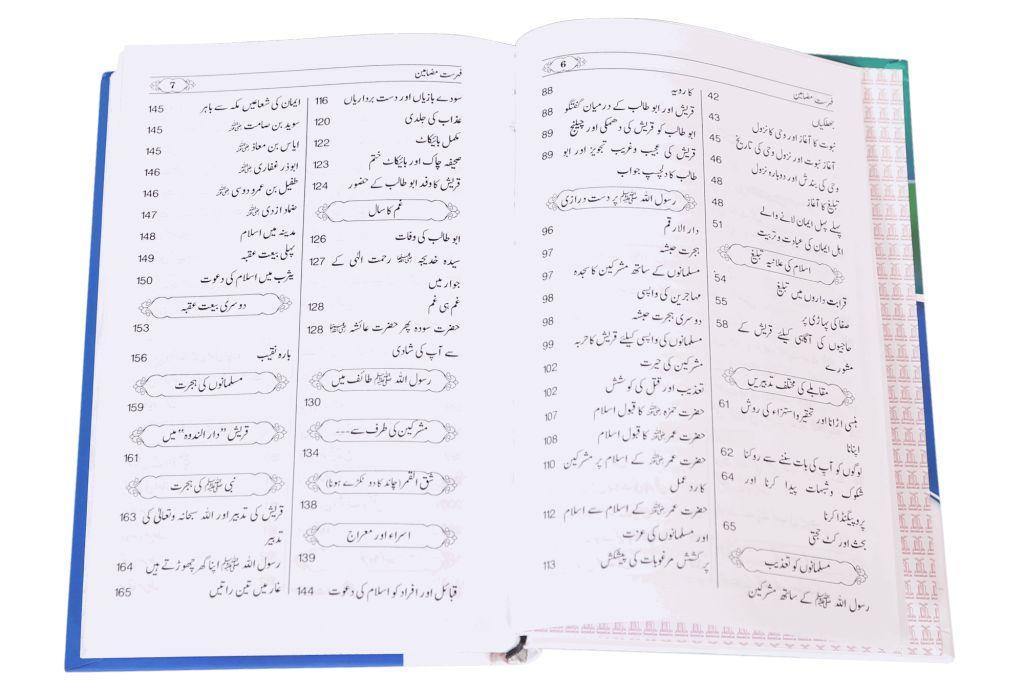 6
فہرست مضامین
جھلکیاں 42
نبوت کا آغاز اور وحی کا نزول 43
آغاز نبوت اور نزول وحی کی تاریخ 45
وحی کی بندش اور دوبارہ نزول 46
تبلیغ کا آغاز 48
پہلے پہل ایمان لانے والے 48
اہل ایمان کی عبادت و تربیت 51
اسلام کی علانیہ تبلیغ
قرابت داروں میں تبلیغ 54
صفا کی پہاڑی پر 55
حاجیوں کی آگاہی کیلئے قریش کے 58
مشورے
مقابلے کی مختلف تدبیریں
ہنسی اڑانا اور تحقیر و استہزاء کی روش 61
اپنانا
لوگوں کو آپ کی بات سننے سے روکنا 62
شکوک و شبہات پیدا کرنا اور 64
پروپیگنڈا کرنا
بحث اور کٹ حجتی 65
مسلمانوں کو تعذیب
رسول اللہ ﷺ کے ساتھ مشرکین
کا رویہ 88
قریش اور ابو طالب کے درمیان گفتگو 88
ابو طالب کو قریش کی دھمکی اور چیلنج 89
قریش کی عجیب و غریب تجویز اور ابو 89
طالب کا دلچسپ جواب
رسول اللہ ﷺ پر دست درازی
دار الارقم 96
ہجرت حبشہ 97
مسلمانوں کے ساتھ مشرکین کا سجدہ 97
مہاجرین کی واپسی 98
دوسری ہجرت حبشہ 98
مسلمانوں کی واپسی کیلئے قریش کا حربہ 99
مشرکین کی حیرت 102
تعذیب اور قتل کی کوشش 102
حضرت حمزہ رضی اللہ عنہ کا قبول اسلام 107
حضرت عمر رضی اللہ عنہ کا قبول اسلام 108
حضرت عمر رضی اللہ عنہ کے اسلام پر مشرکین 110
کا رد عمل
حضرت عمر رضی اللہ عنہ کے اسلام سے اسلام 112
اور مسلمانوں کی عزت
پر کشش مرغوبات کی پیشکش 113
فہرست مضامین
7
سودے بازیاں اور دست برداریاں 116
عذاب کی جلدی 120
مکمل بائیکاٹ 122
صحیفہ چاک اور بائیکاٹ ختم 123
قریش کا وفد ابو طالب کے حضور 124
غم کا سال
ابو طالب کی وفات 126
سیدہ خدیجہ رضی اللہ عنہا رحمت الٰہی کے 127
جوار میں
غم ہی غم 128
حضرت سودہ پھر حضرت عائشہ رضی اللہ عنہا 128
سے آپ کی شادی
رسول اللہ ﷺ طائف میں
130
مشرکین کی طرف سے ---
134
شق القمر (چاند کا دو ٹکڑے ہونا)
138
اسراء اور معراج
139
قبائل اور افراد کو اسلام کی دعوت 144
ایمان کی شعاعیں مکہ سے باہر 145
سوید بن صامت رضی اللہ عنہ 145
ایاس بن معاذ رضی اللہ عنہ 145
ابوذر غفاری رضی اللہ عنہ 146
طفیل بن عمرو دوسی رضی اللہ عنہ 146
ضماد ازدی رضی اللہ عنہ 147
مدینہ میں اسلام 148
پہلی بیعت عقبہ 149
یثرب میں اسلام کی دعوت 150
دوسری بیعت عقبہ
153
بارہ نقیب 156
مسلمانوں کی ہجرت
159
قریش "دار الندوہ" میں
161
نبی ﷺ کی ہجرت
قریش کی تدبیر اور اللہ سبحانہ وتعالیٰ کی 163
تدبیر
رسول اللہ ﷺ اپنا گھر چھوڑتے ہیں 164
غار میں تین راتیں 165